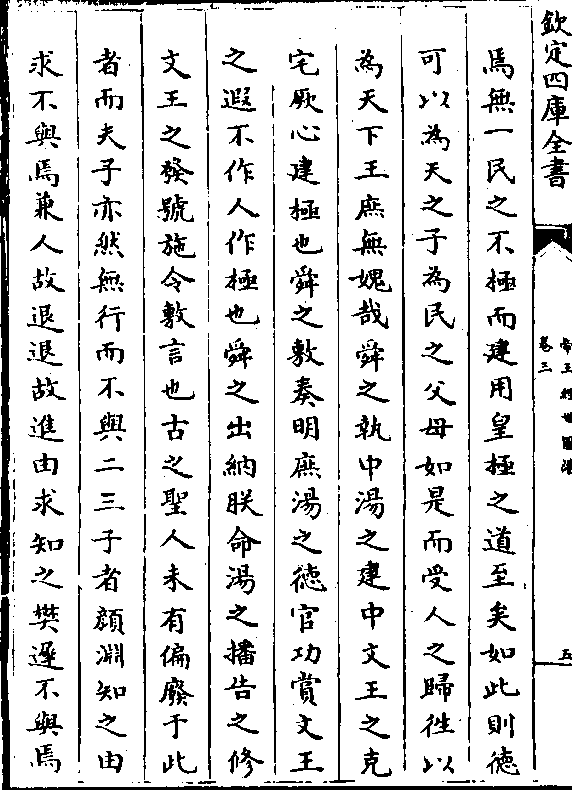 欽定四庫全書
帝王經世圖譜
卷三
五
焉無一民之不極而建用皇極之道至矣如此則德
可以為天之子為民之父母如是而受人之歸徃以
為天下王庶無媿哉舜之執中湯之建中文王之克
宅厥心建極也舜之敷奏明庶湯之德官功賞文王
之遐不作人作極也舜之出納朕命湯之播告之修
文王之發號施令敷言也古之聖人未有偏廢于此
者而夫子亦然無行而不與二三子者顔淵知之由
求不與焉兼人故退退故進由求知之樊遲不與焉